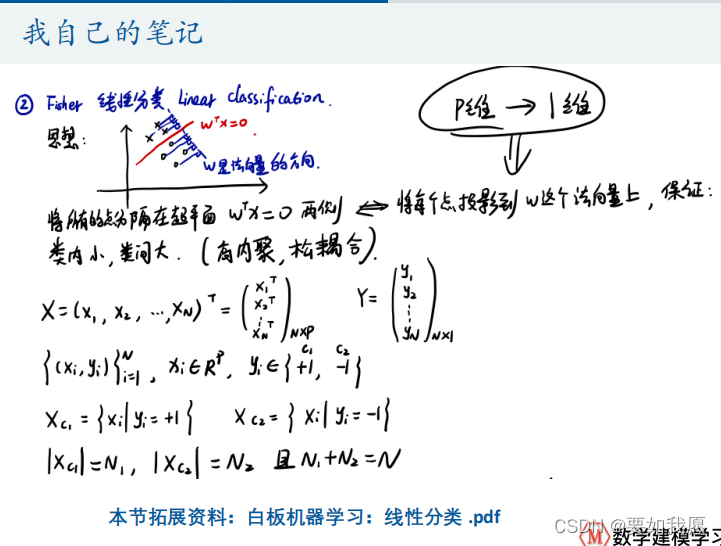 我自己的笔记
② Fisher 线性分类 Linear classification.
P维 → 1维
思想:
wᵀx=0
w是法向量的方向.
将所有的点分隔在超平面 wᵀx=0 两侧 ⇔ 将每个点投影到w这个法向量上, 保证:
类内小, 类间大. (高内聚, 松耦合).
X=(x₁, x₂, ..., x_N)ᵀ = (x₁ᵀ x₂ᵀ ⋮ x_Nᵀ)_{N×P} Y= (y₁ y₂ ⋮ y_N)_{N×1}
{(xᵢ, yᵢ)}ᵢ₌₁ᴺ, xᵢ∈Rᴾ, yᵢ∈{+1, -1} C₁ C₂
X_{C₁} = {xᵢ| yᵢ=+1} X_{C₂} = {xᵢ| yᵢ=-1}
|X_{C₁}|=N₁, |X_{C₂}|=N₂ 且 N₁+N₂=N
本节拓展资料：白板机器学习：线性分类 .pdf
CSDN @要如我愿
《M》数学建模学习